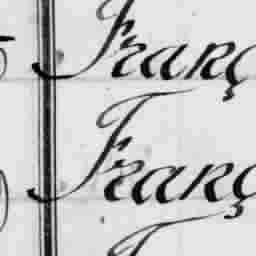 Franç
Franç